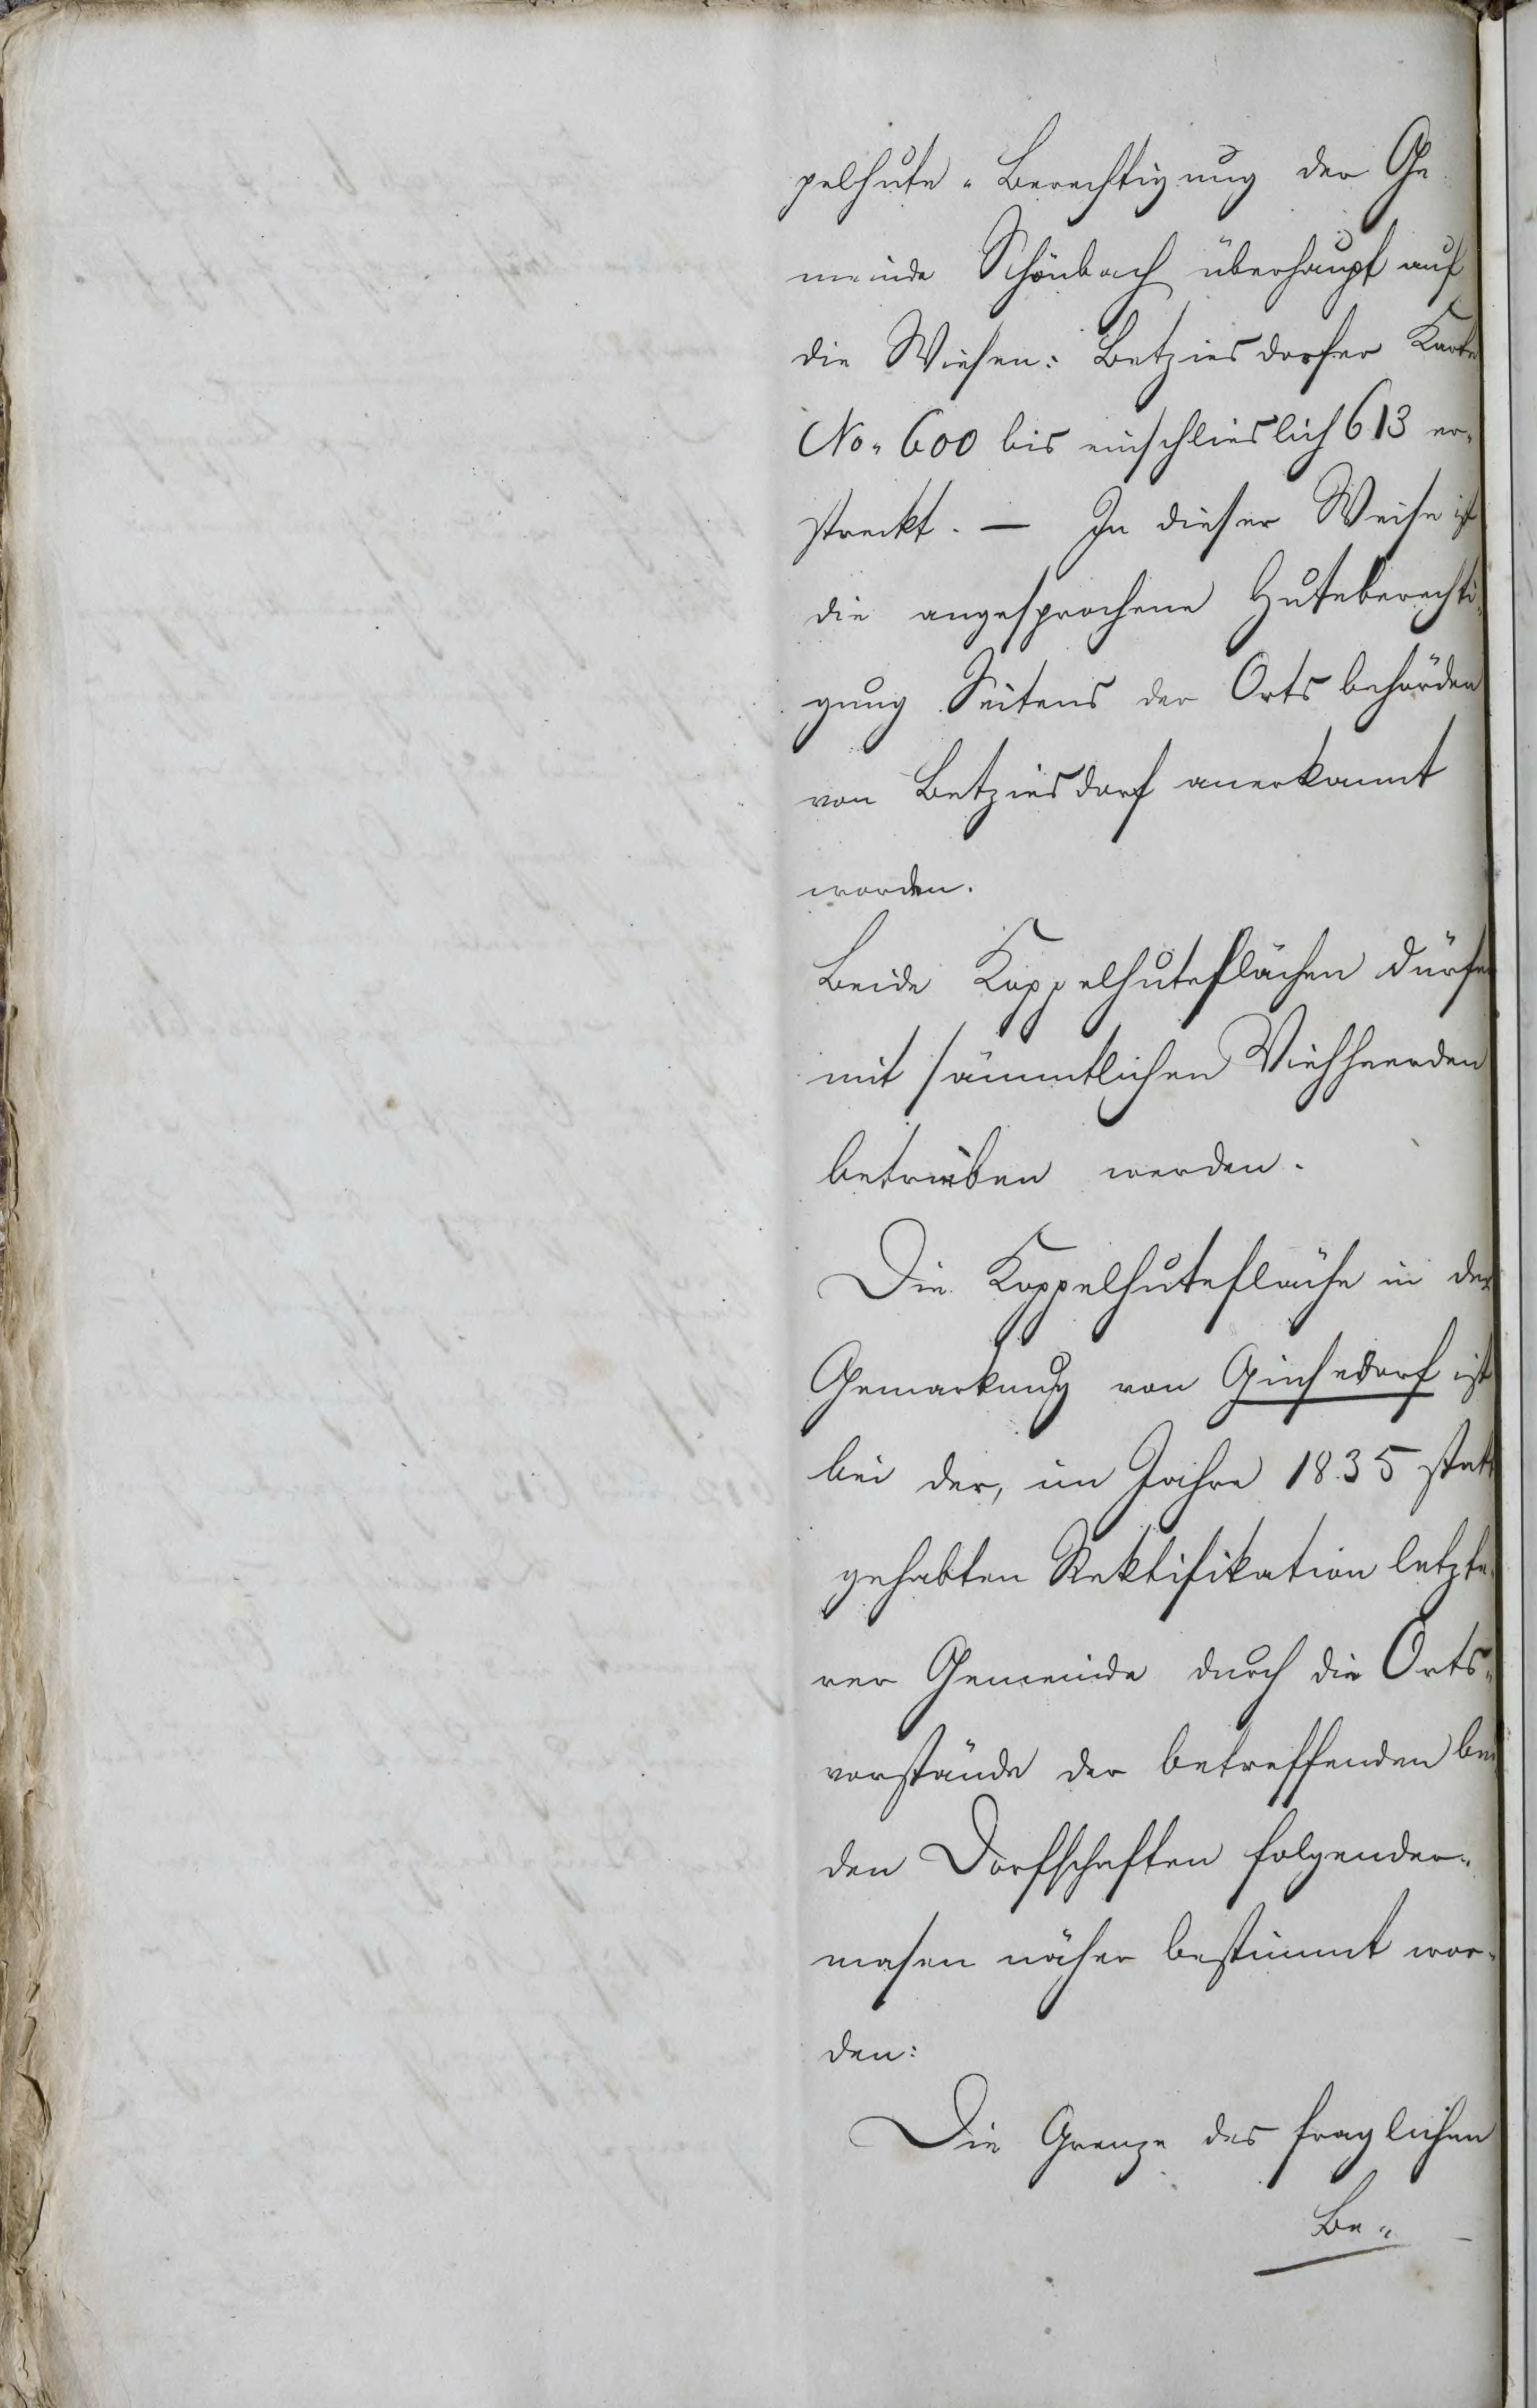 pelhute-Berechtigung der Ge
meinde Schönbach überhaupt auf
die Wiesen: Betziesdorfer Karte
No. 600 bis einschlieslich 613 er-
streckt. — In dieser Weise ist
die angesprochene Huteberechti-
gung Seitens der Ortsbehörden
von Betziesdorf anerkannt
worden.
Beide Koppelhuteflächen dürfen
mit sämmtlichen Viehheerden
betrieben werden.
Die Koppelhutefläche in der
Gemarkung von Ginsedorf ist
bei der, im Jahre 1835 statt
gehabten Rektifikation letzte-
rer Gemeinde durch die Orts-
vorstände der betreffenden bei
den Dorfschaften folgender-
masen näher bestimmt wor-
den:
Die Grenze des fraglichen
Be-